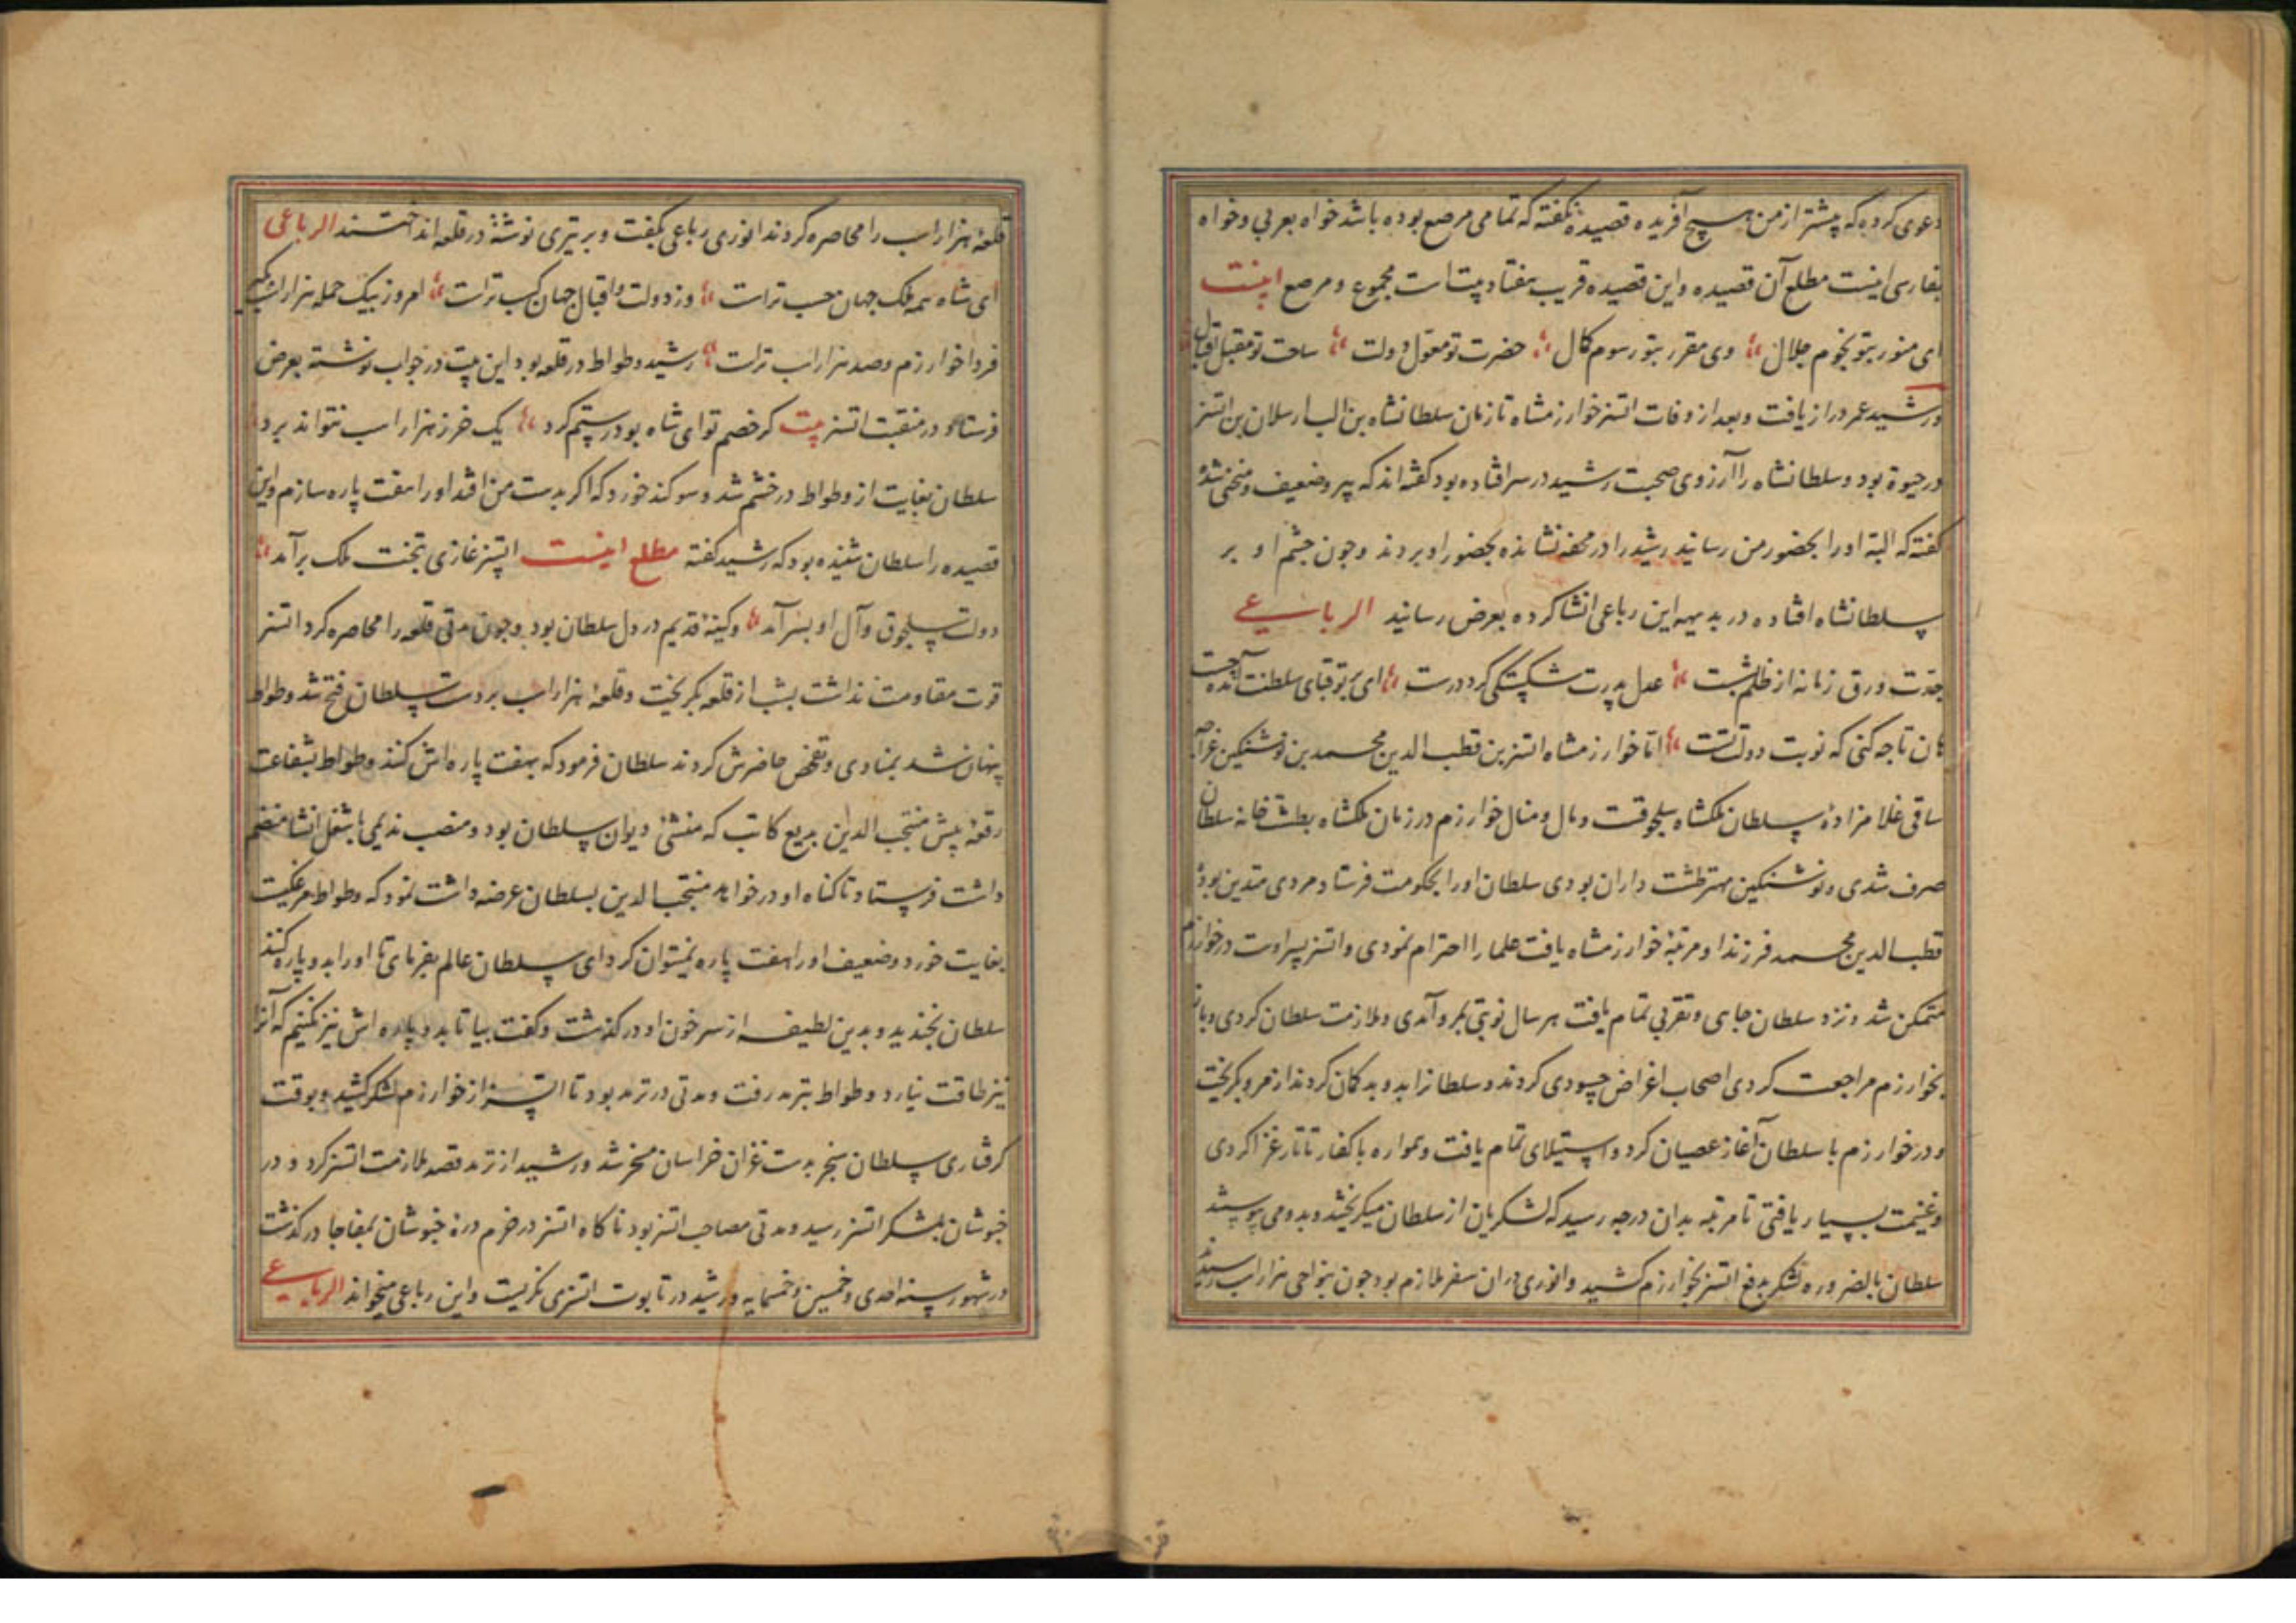 دعوی کرده که پیشتر از من هیچ آفریده قصیدهٔ نگفته که تمامی مرصع بوده باشد خواه بعربی و خواه
بفارسی اینست مطلع آن قصیده و این قصیده قریب هفتاد بیت است مجموع و مرصع اینست
ای منور بتو نجوم جلال وی مقرر بتو رسوم کمال حضرت تو معول دولت ساحت تو مقبل اقبال
و رشید عمر دراز یافت و بعد از وفات اتسز خوارزمشاه تا زمان سلطانشاه بن الب ارسلان بن اتسز
در حیوة بود و سلطانشاه را آرزوی صحبت رشید در سر افتاده بود گفته‌اند که پیر و ضعیف و منحنی شده
گفته که البته او را بحضور من رسانید رشید را در محفه نشانده بحضور او بردند و چون چشم او بر
سلطانشاه افتاده در بدیهه این رباعی انشا کرده بعرض رسانید الرباعی
جدت ورق زمانه از ظلم بشست عدل پدرت شکستگی کرد درست ای بر تو قبای سلطنت آمده چست
هان تا چه کنی که نوبت دولت تست اما خوارزمشاه اتسز بن قطب الدین محمد بن نوشتکین غرجه
ساقی غلامزادهٔ سلطان ملکشاه سلجوقست و مال و منال خوارزم در زمان ملکشاه بطشتخانه سلطان
صرف شدی و نوشتکین مهتر طشت داران بودی سلطان او را بحکومت فرستاد مردی متدین بوده
قطب الدین محمد فرزند او مرتبهٔ خوارزمشاه یافت علما را احترام نمودی و اتسز پسر اوست در خوارزم
متمکن شد و نزد سلطان جاهی و تقربی تمام یافت هر سال نوبتی بمرو آمدی و ملازمت سلطان کردی و باز
بخوارزم مراجعت کردی اصحاب اغراض حسودی کردند و سلطانرا بدو بد گمان کردند از مرو بگریخت
و در خوارزم با سلطان آغاز عصیان کرد و استیلای تمام یافت و همواره با کفار تاتار غزا کردی
و غنیمت بسیار یافتی تا مرتبه بدان درجه رسید که لشکریان از سلطان میگریختند و بدو می پیوستند
سلطان بالضروره لشکر بدفع اتسز بخوارزم کشید و انوری دران سفر ملازم بود چون بنواحی هزاراسب رسیدند
قلعهٔ هزاراسب را محاصره کردند انوری رباعی بگفت و بر تیری نوشتهٔ در قلعه انداختند الرباعی
ای شاه همه ملک جهان حسب تراست وز دولت و اقبال جهان کسب تراست امروز بیک حمله هزاراسب بگیر
فردا خوارزم و صد هزار اسب تراست رشید وطواط در قلعه بود این بیت در جواب نوشته بعرض
فرستاد و در منقبت اتسز بیت گر خصم تو ای شاه بود رستم گرد یک خر ز هزاراسب نتواند برد
سلطان بغایت از وطواط در خشم شد و سوگند خورد که اگر بدست من افتد او را هفت پاره سازم و این
قصیده را سلطان شنیده بود که رشید گفته مطلع اینست اتسز غازی بتخت ملک برآمد
دولت سلجوق و آل او بسر آمد و کینهٔ قدیم در دل سلطان بود و چون مدتی قلعه را محاصره کرد اتسز
قوت مقاومت نداشت بشب از قلعه بگریخت و قلعهٔ هزاراسب بر دست سلطان فتح شد وطواط
پنهان شد بمنادی و تفحص حاضرش کردند سلطان فرمود که بهفت پاره‌اش کنند وطواط بشفاعت
رقعهٔ پیش منتجب الدین بدیع کاتب که منشی دیوان سلطان بود و منصب ندیمی با شغل انشا منضم
داشت فرستاد تا گناه او درخواهد منتجب الدین بسلطان عرضه داشت نمود که وطواط مرغکیست
بغایت خورد و ضعیف او را هفت پاره نمیتوان کرد ای سلطان عالم بفرمای تا او را بدو پاره کنند
سلطان بخندید و بدین لطیفه از سر خون او درگذشت و گفت بیا تا بدو پاره اش نیز نکنیم که آنرا
نیز طاقت نیارد وطواط بترمد رفت و مدتی در ترمد بود تا اتسز از خوارزم لشکر کشید و بوقت
گرفتاری سلطان سنجر بدست غزان خراسان مسخر شد و رشید از ترمد قصد ملازمت اتسز کرد و در
خبوشان بلشکر اتسز رسید و مدتی مصاحب اتسز بود ناگاه اتسز در خرم درهٔ خبوشان بمفاجا درگذشت
در شهور سنه احدی و خمسین و خمسمایه و رشید در تابوت اتسز می نگریست و این رباعی میخواند الرباعی